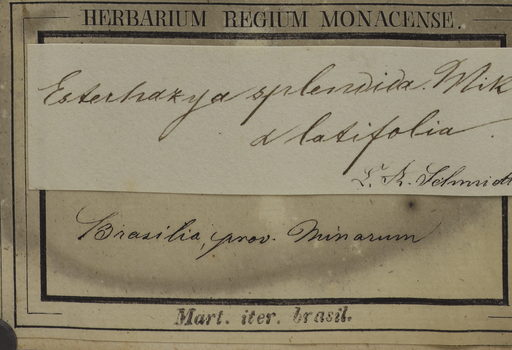 HERBARIUM REGIUM MONACENSE.
Esterhazya splendida. Mik
α latifolia.
Schmidt
Brasilia, prov. Minarum
Mart. iter. brasil.